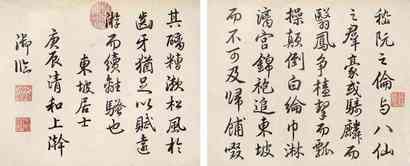 嵇阮之倫與八仙
之羣豪或騎麟而
翳鳳爭榼挈而瓢
操顛倒白綸巾淋
漓宮錦袍追東坡
而不可及歸餔歠
其醨糟漱松風於
齒牙猶足以賦遠
游而續離騷也
東坡居士
庚辰清和上澣
御臨